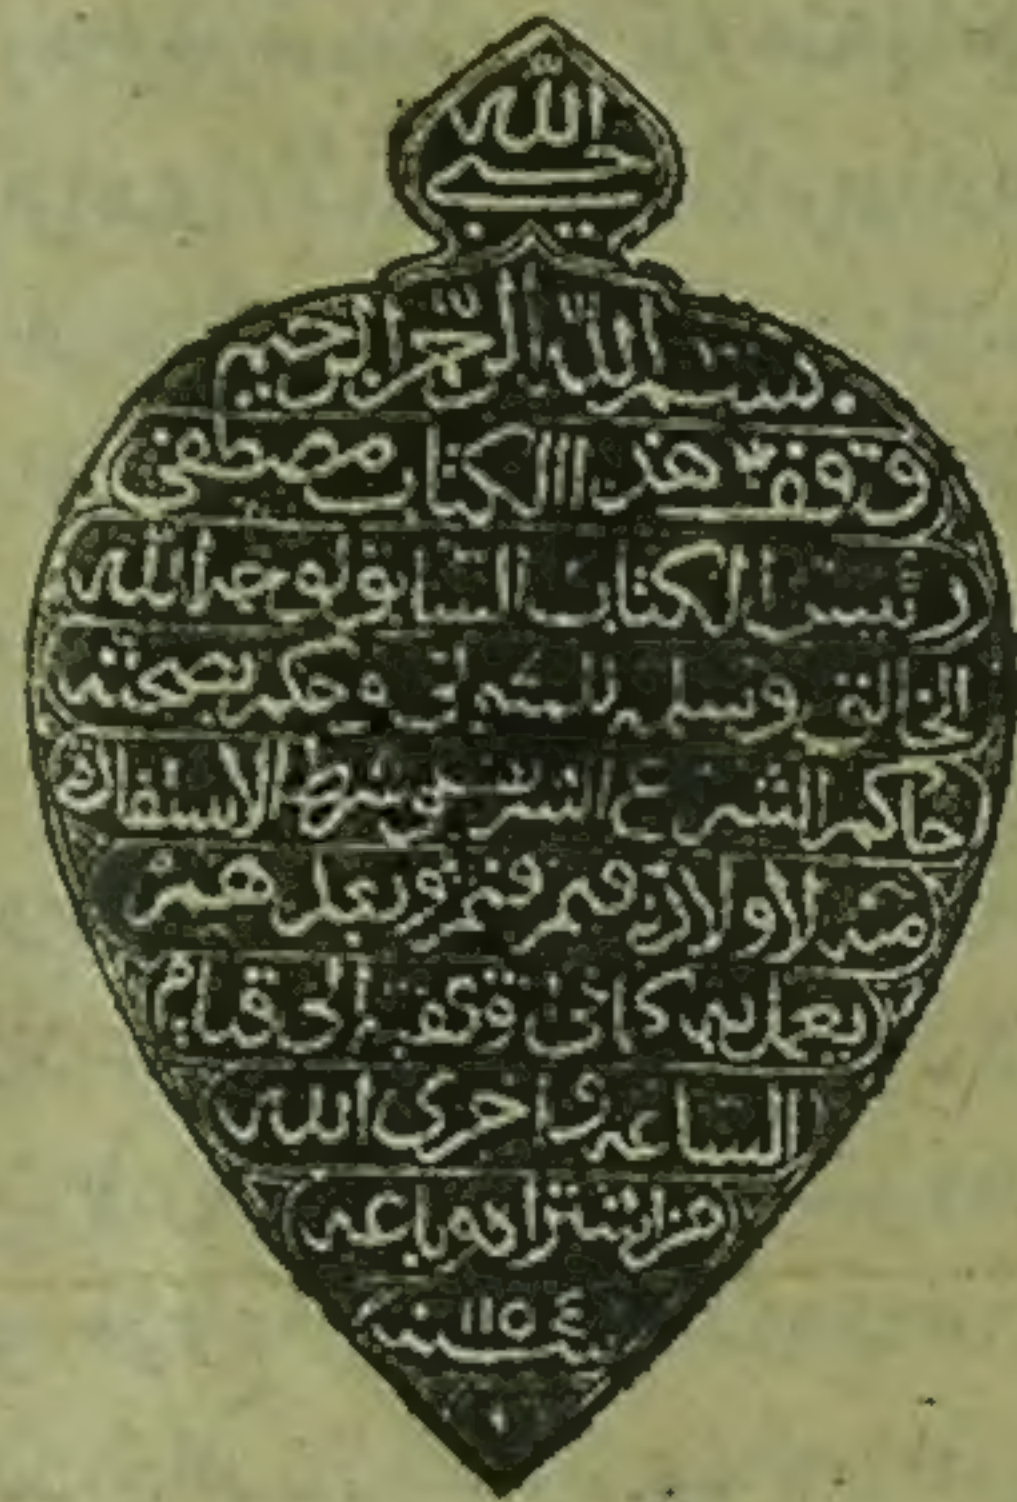 الله
حسبي
بسم الله الرحمن الرحيم
وقف هذا الكتاب مصطفى
رئيس الكتاب السابق لوجه الله
الخالق وسلمه للمتولي وحكم بصحته
حاكم الشرع الشريف وشرط الاستفادة
منه لاولاده فمن فمن وبعدهم
يعمل به كما في وقفيته الى قيام
الساعة واخزى الله
من اشتراه وباعه
سنة ١١٥٤